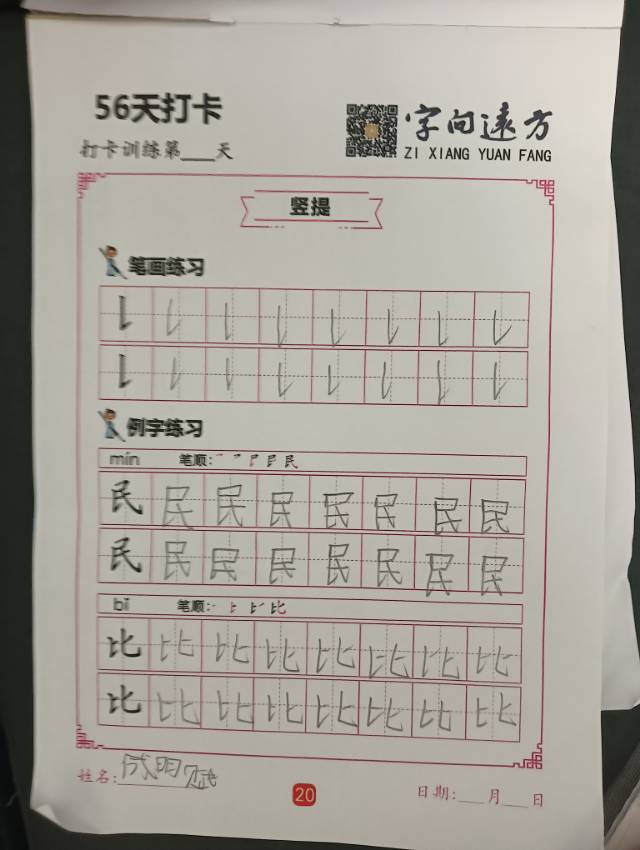 56天打卡
打卡训练第___天
字向远方
ZI XIANG YUAN FANG
竖提
笔画练习
例字练习
mín 笔顺:
民 民 民 民 民 民 民 民
民 民 民 民 民 民 民 民
bǐ 笔顺:
比 比 比 比 比 比 比 比
比 比 比 比 比 比 比 比
姓名:成明斌
20
日期:___月___日